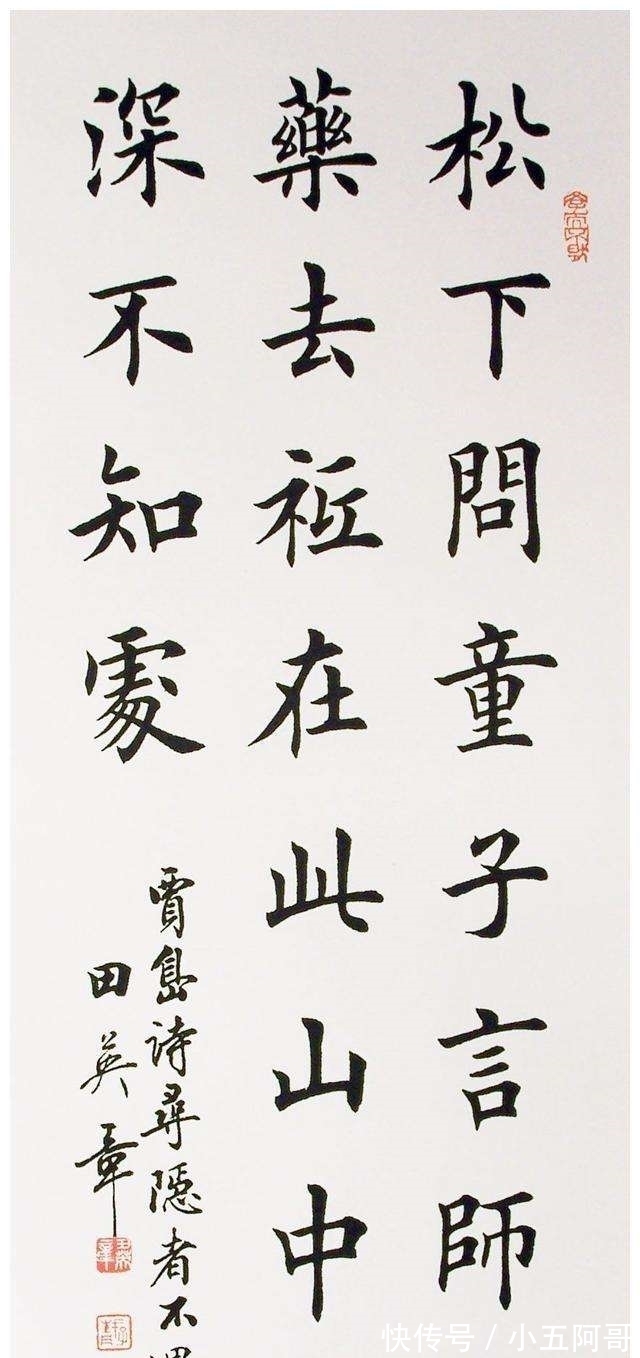 松下問童子言師
藥去祗在此山中
深不知處
賈島诗尋隐者不
田英章
快传号 / 小五阿哥